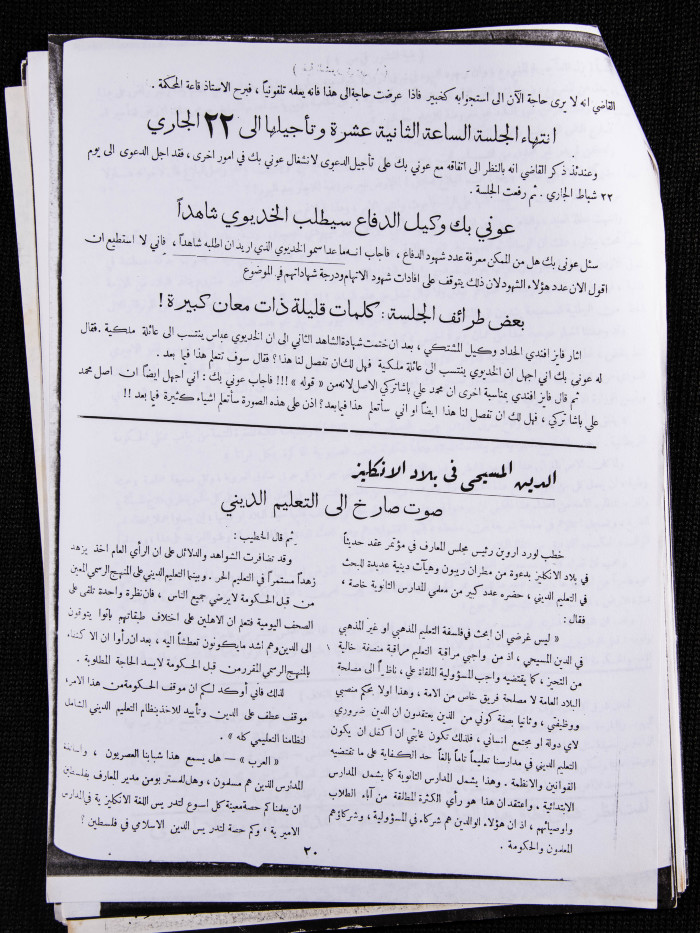 القاضي انه لا يرى حاجة الآن الى استجوابه كخبير فاذا عرضت حاجة الى هذا فانه يعلمه تلفونياً ، فبرح الاستاذ قاعة المحكمة .
انتهاء الجلسة الساعة الثانية عشرة وتأجيلها الى ٢٢ الجاري
وعندئذ ذكر القاضي انه بالنظر الى اتفاقه مع عوني بك على تأجيل الدعوى لانشغال عوني بك في امور اخرى ، فقد اجل الدعوى الى يوم
٢٢ شباط الجاري . ثم رفعت الجلسة .
عوني بك وكيل الدفاع سيطلب الخديوي شاهداً
سئل عوني بك هل من الممكن معرفة عدد شهود الدفاع ، فاجاب انه ما عدا سمو الخديوي الذي اريد ان اطلبه شاهداً ، فاني لا استطيع ان
اقول الان عدد هؤلاء الشهود لان ذلك يتوقف على افادات شهود الاتهام ودرجة شهاداتهم في الموضوع
بعض طرائف الجلسة : كلمات قليلة ذات معان كبيرة !
اثار فايز افندي الحداد وكيل المشتكي ، بعد ان ختمت شهادة الشاهد الثاني الى ان الخديوي عباس ينتسب الى عائلة ملكية . فقال
له عوني بك اني اجهل ان الخديوي ينتسب الى عائلة ملكية فهل لك ان تفصل لنا هذا ؟ فقال سوف نتعلم هذا فيما بعد .
ثم قال فايز افندي بمناسبة اخرى ان محمد علي باشا تركي الاصل لانه من « قوله » !!! فاجاب عوني بك : اني أجهل ايضاً ان اصل محمد
علي باشا تركي ، فهل لك ان تفصل لنا هذا ايضاً او اني سأتعلم هذا فيما بعد ؟ اذن على هذه الصورة سأتعلم اشياء كثيرة فيما بعد !!
الدين المسيحي في بلاد الانكليز
صوت صارخ الى التعليم الديني
خطب لورد اروين رئيس مجلس المعارف في مؤتمر عقد حديثاً
في بلاد الانكليز بدعوة من مطران ريبون وهيآت دينية عديدة للبحث
في التعليم الديني ، حضره عدد كبير من معلمي المدارس الثانوية خاصة ،
فقال :
« ليس غرضي ان ابحث في فلسفة التعليم المذهبي او غير المذهبي
في الدين المسيحي ، اذ من واجبي مراقبة التعليم مراقبة منصفة خالية
من التحيز ، كما يقتضيه واجب المسؤولية الملقاة علي ، ناظراً الى مصلحة
البلاد العامة لا مصلحة فريق خاص من الامة ، وهذا اولا بحكم منصبي
ووظيفتي ، وثانيا بصفة كوني من الذين يعتقدون ان الدين ضروري
لاي دولة او مجتمع انساني ، فلذلك تكون غايتي ان اكفل ان يكون
التعليم الديني في مدارسنا تعليماً تاماً بالغاً حد الكفاية على ما تقتضيه
القوانين والانظمة . وهذا يشمل المدارس الثانوية كما يشمل المدارس
الابتدائية . واعتقد ان هذا هو رأي الكثرة المطلقة من آباء الطلاب
واوصيائهم ، اذ ان هؤلاء الوالدين هم شركاء في المسؤولية ، وشركاؤهم
المعلمون والحكومة .
ثم قال الخطيب :
وقد تضافرت الشواهد والدلائل على ان الرأي العام اخذ يزهد
زهداً مستمراً في التعليم الحر . وبينما التعليم الديني على المنهج الرسمي المعين
من قبل الحكومة لا يرضي جميع الناس ، فان نظرة واحدة تلقى على
الصحف اليومية فتعلم ان الاهلين على اختلاف طبقاتهم باتوا يتوقون
الى الدين وهم اشد ما يكونون تعطشاً اليه ، بعد ان رأوا ان الاكتفاء
بالمنهج الرسمي المقرر من قبل الحكومة لا يسد الحاجة المطلوبة .
لذلك فاني أوكد لكم ان موقف الحكومة من هذا الامر ،
موقف عطف على الدين وتأييد للاخذ بنظام التعليم الديني الشامل
لنظامنا التعليمي كله » .
« العرب » — هل يسمع هذا شبابنا العصريون ، واساتذة
المدارس الذين هم مسلمون ، وهل لمستر بومن مدير المعارف بفلسطين
ان يعلمنا كم حصة معينة كل اسبوع لتدريس اللغة الانكليزية في المدارس
الاميرية ، وكم حصة لتدريس الدين الاسلامي في فلسطين ؟
٢٠